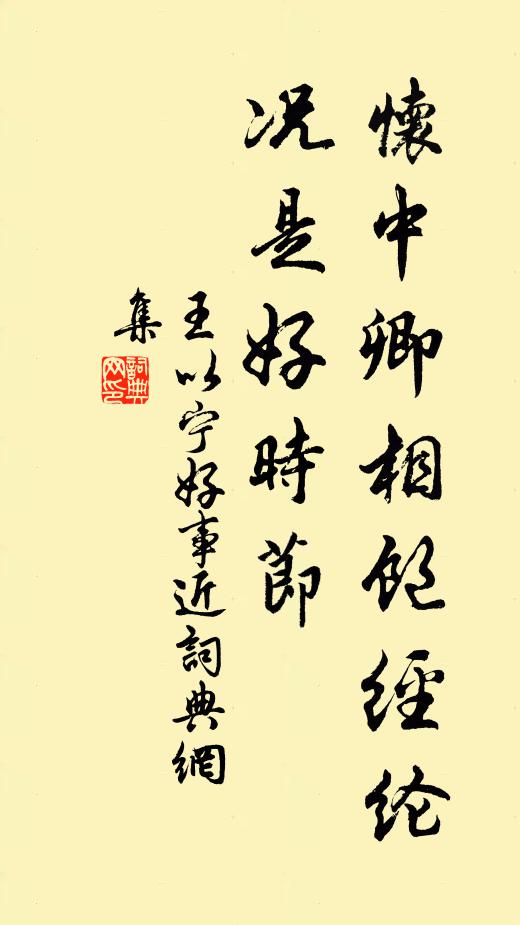 懷中卿相飽經纶
况是好時節
王以宁好事近詞典網
集
詞典
网印